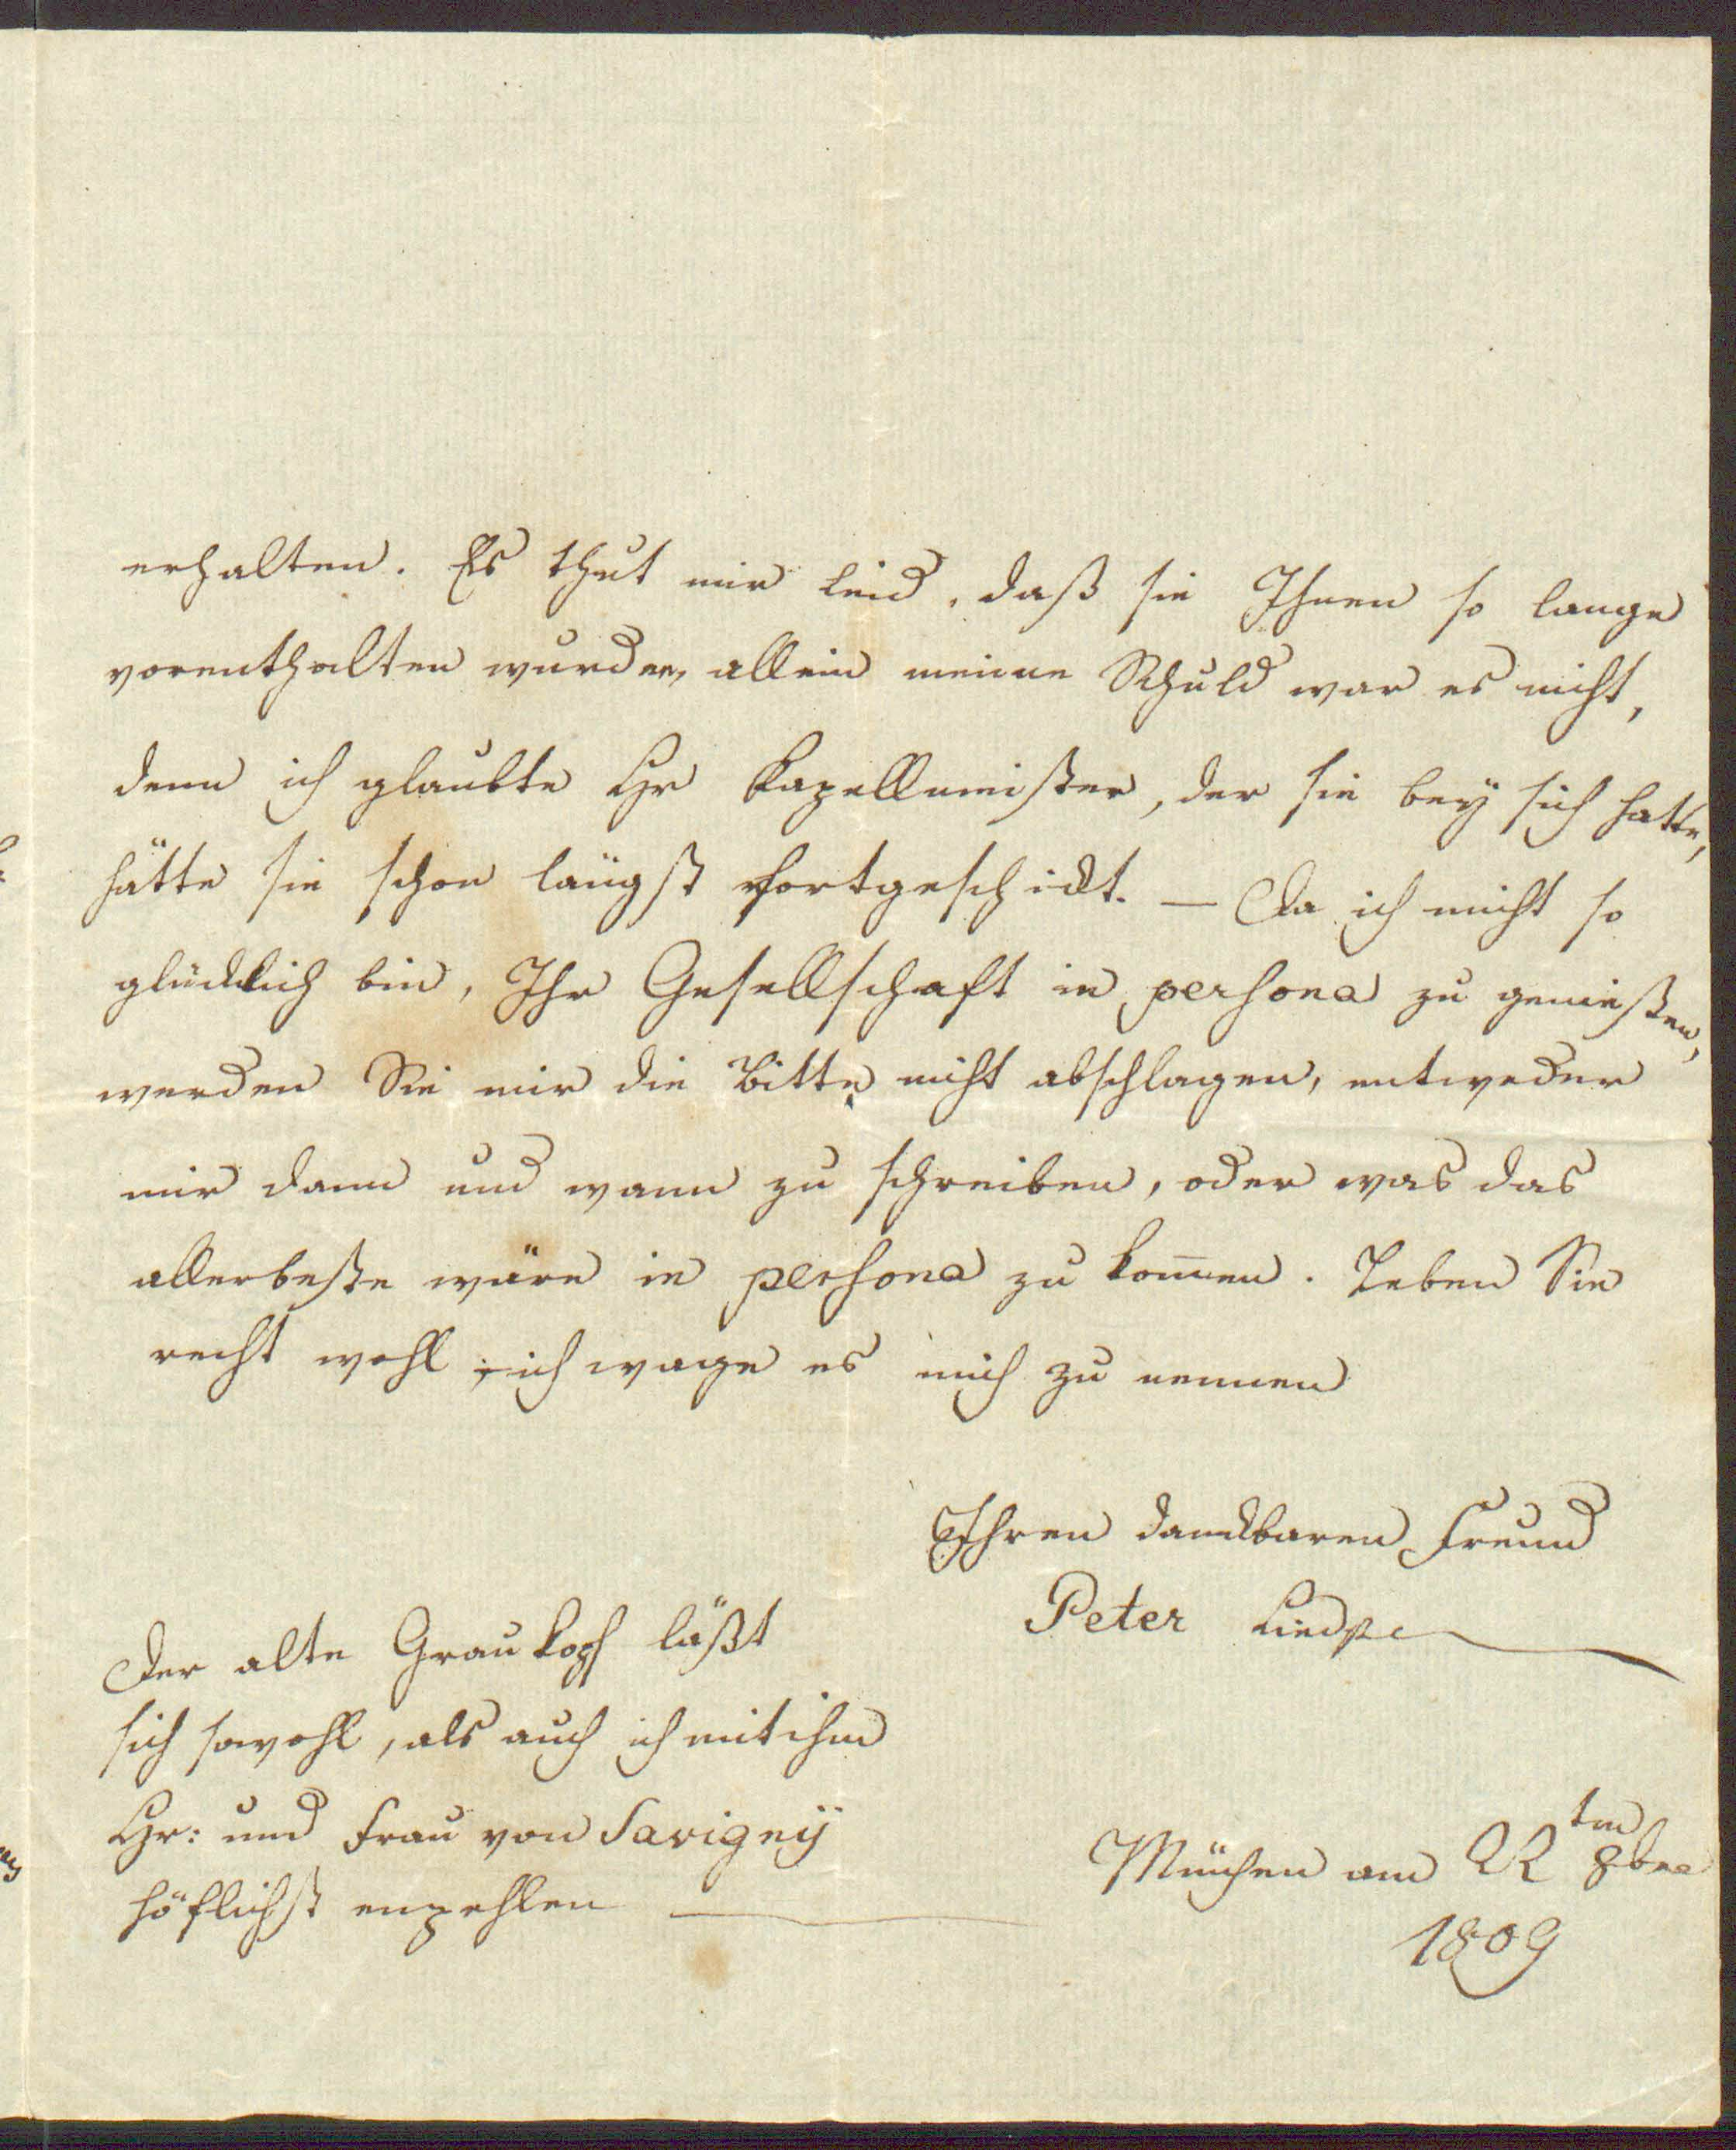 erhalten. Es thut mir leid, daß sie Ihnen so lange
vorenthalten wurden, allein meine Schuld war es nicht,
denn ich glaubte Hr Kapellmeister, der sie bey sich hatte,
hätte sie schon längst fortgeschickt. — Da ich nicht so
glücklich bin, Ihr Gesellschaft in persona zu genießen,
werden Sie mir die Bitte nicht abschlagen, entweder
mir dann und wann zu schreiben, oder was das
allerbeste wäre in persona zu kom̅en. Leben Sie
recht wohl, ich wage es mich zu nennen
Ihren danckbaren Freund
Peter
Der alte Graukopf läßt
sich sowohl, als auch ich mit ihm
Hr: und Frau von Savigny
höflichst enpehlen
München am 22 ten 8bre
1809